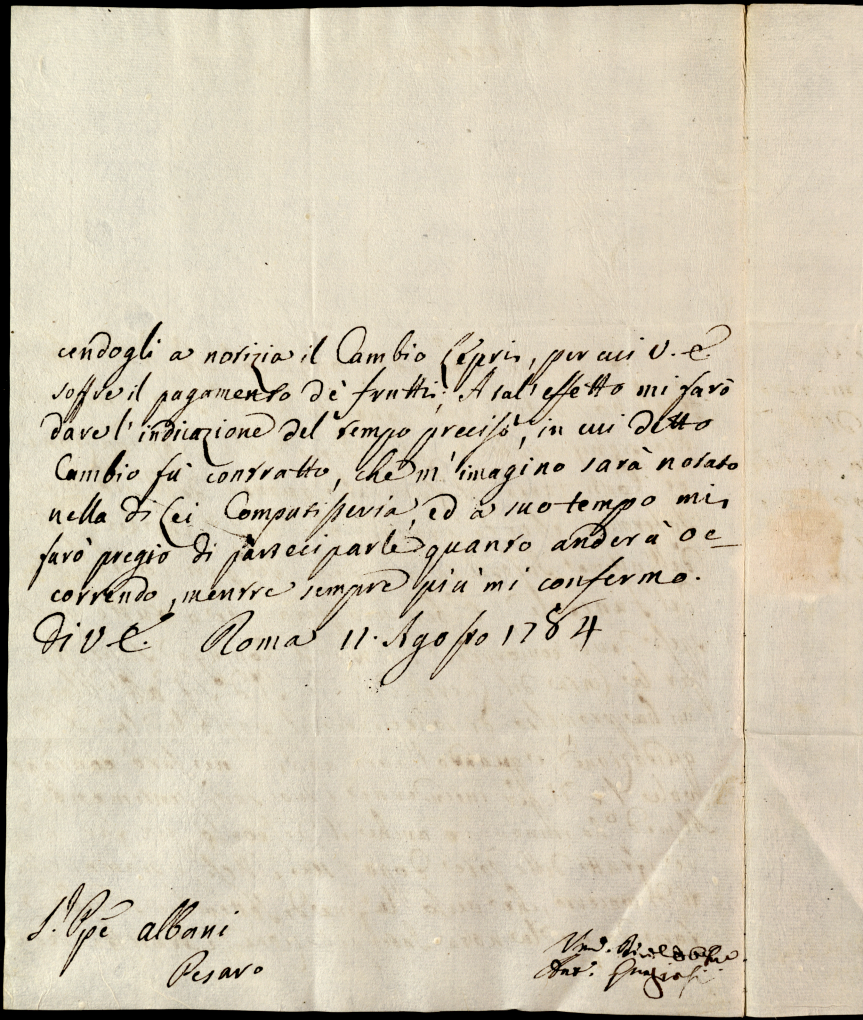 cendogli a notizia il Cambio Lepri, per cui V. E.
soffre il pagamento de' frutti; A tal' effetto mi farò
dare l' indicazione del tempo preciso, in cui detto
Cambio fù contratto, che m' imagino sarà notato
nella di Lei Computisteria, ed a suo tempo mi
farò pregio di parteciparle quanto anderà oc_
correndo, mentre sempre più mi confermo.
Di V. E. Roma 11. Agosto 1784
S.r Ppe Albani
Pesaro
Ant.